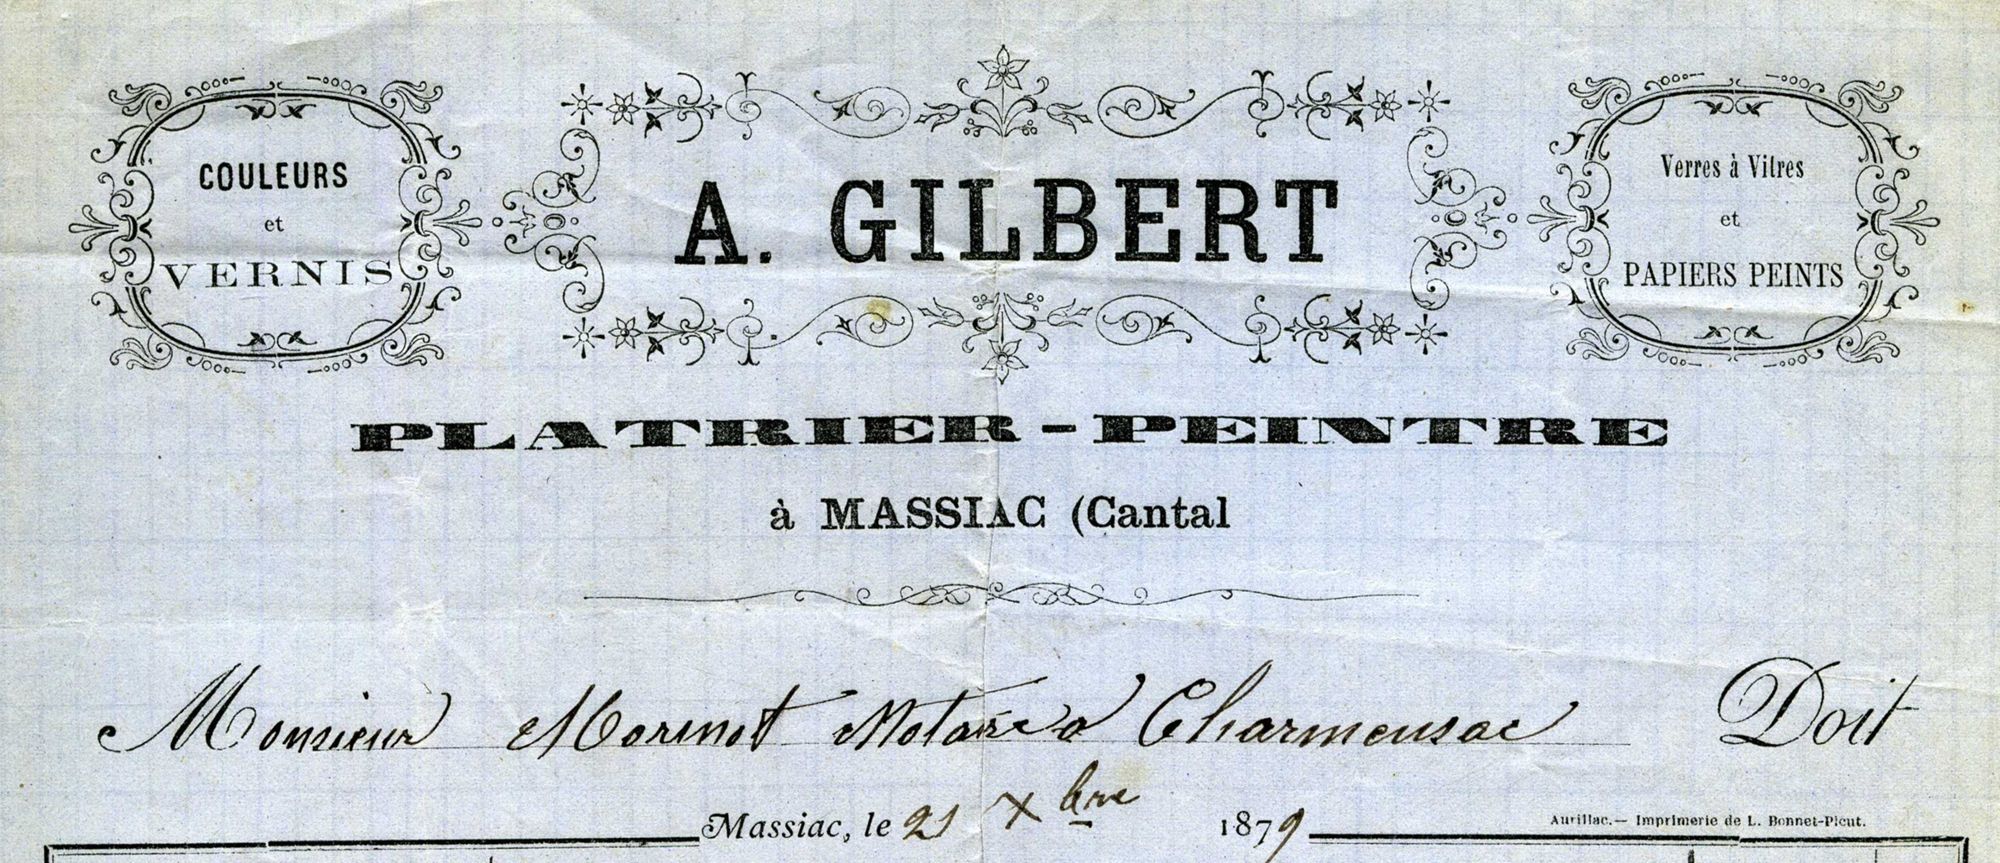 COULEURS
et
VERNIS
A. GILBERT
Verres à Vitres
et
PAPIERS PEINTS
PLATRIER-PEINTRE
à MASSIAC (Cantal
Monsieur Morinot Notaire a Charmensac Doit
Massiac, le 21 Xbre 1879
Aurillac.— Imprimerie de L. Bonnet-Picut.